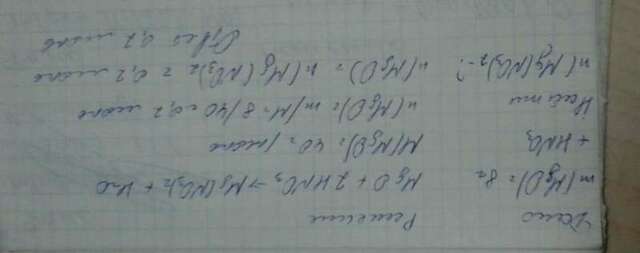 Дано
Решение
m(MgO) = 8г
MgO + 2HNO₃ → Mg(NO₃)₂ + H₂O
+ HNO₃
M(MgO) = 40г/моль
Найти
n(MgO) = m/M = 8/40 = 0,2 моль
n(Mg(NO₃)₂ - ?
n(MgO) = n(Mg(NO₃)₂ = 0,2 моль
Ответ 0,2 моль